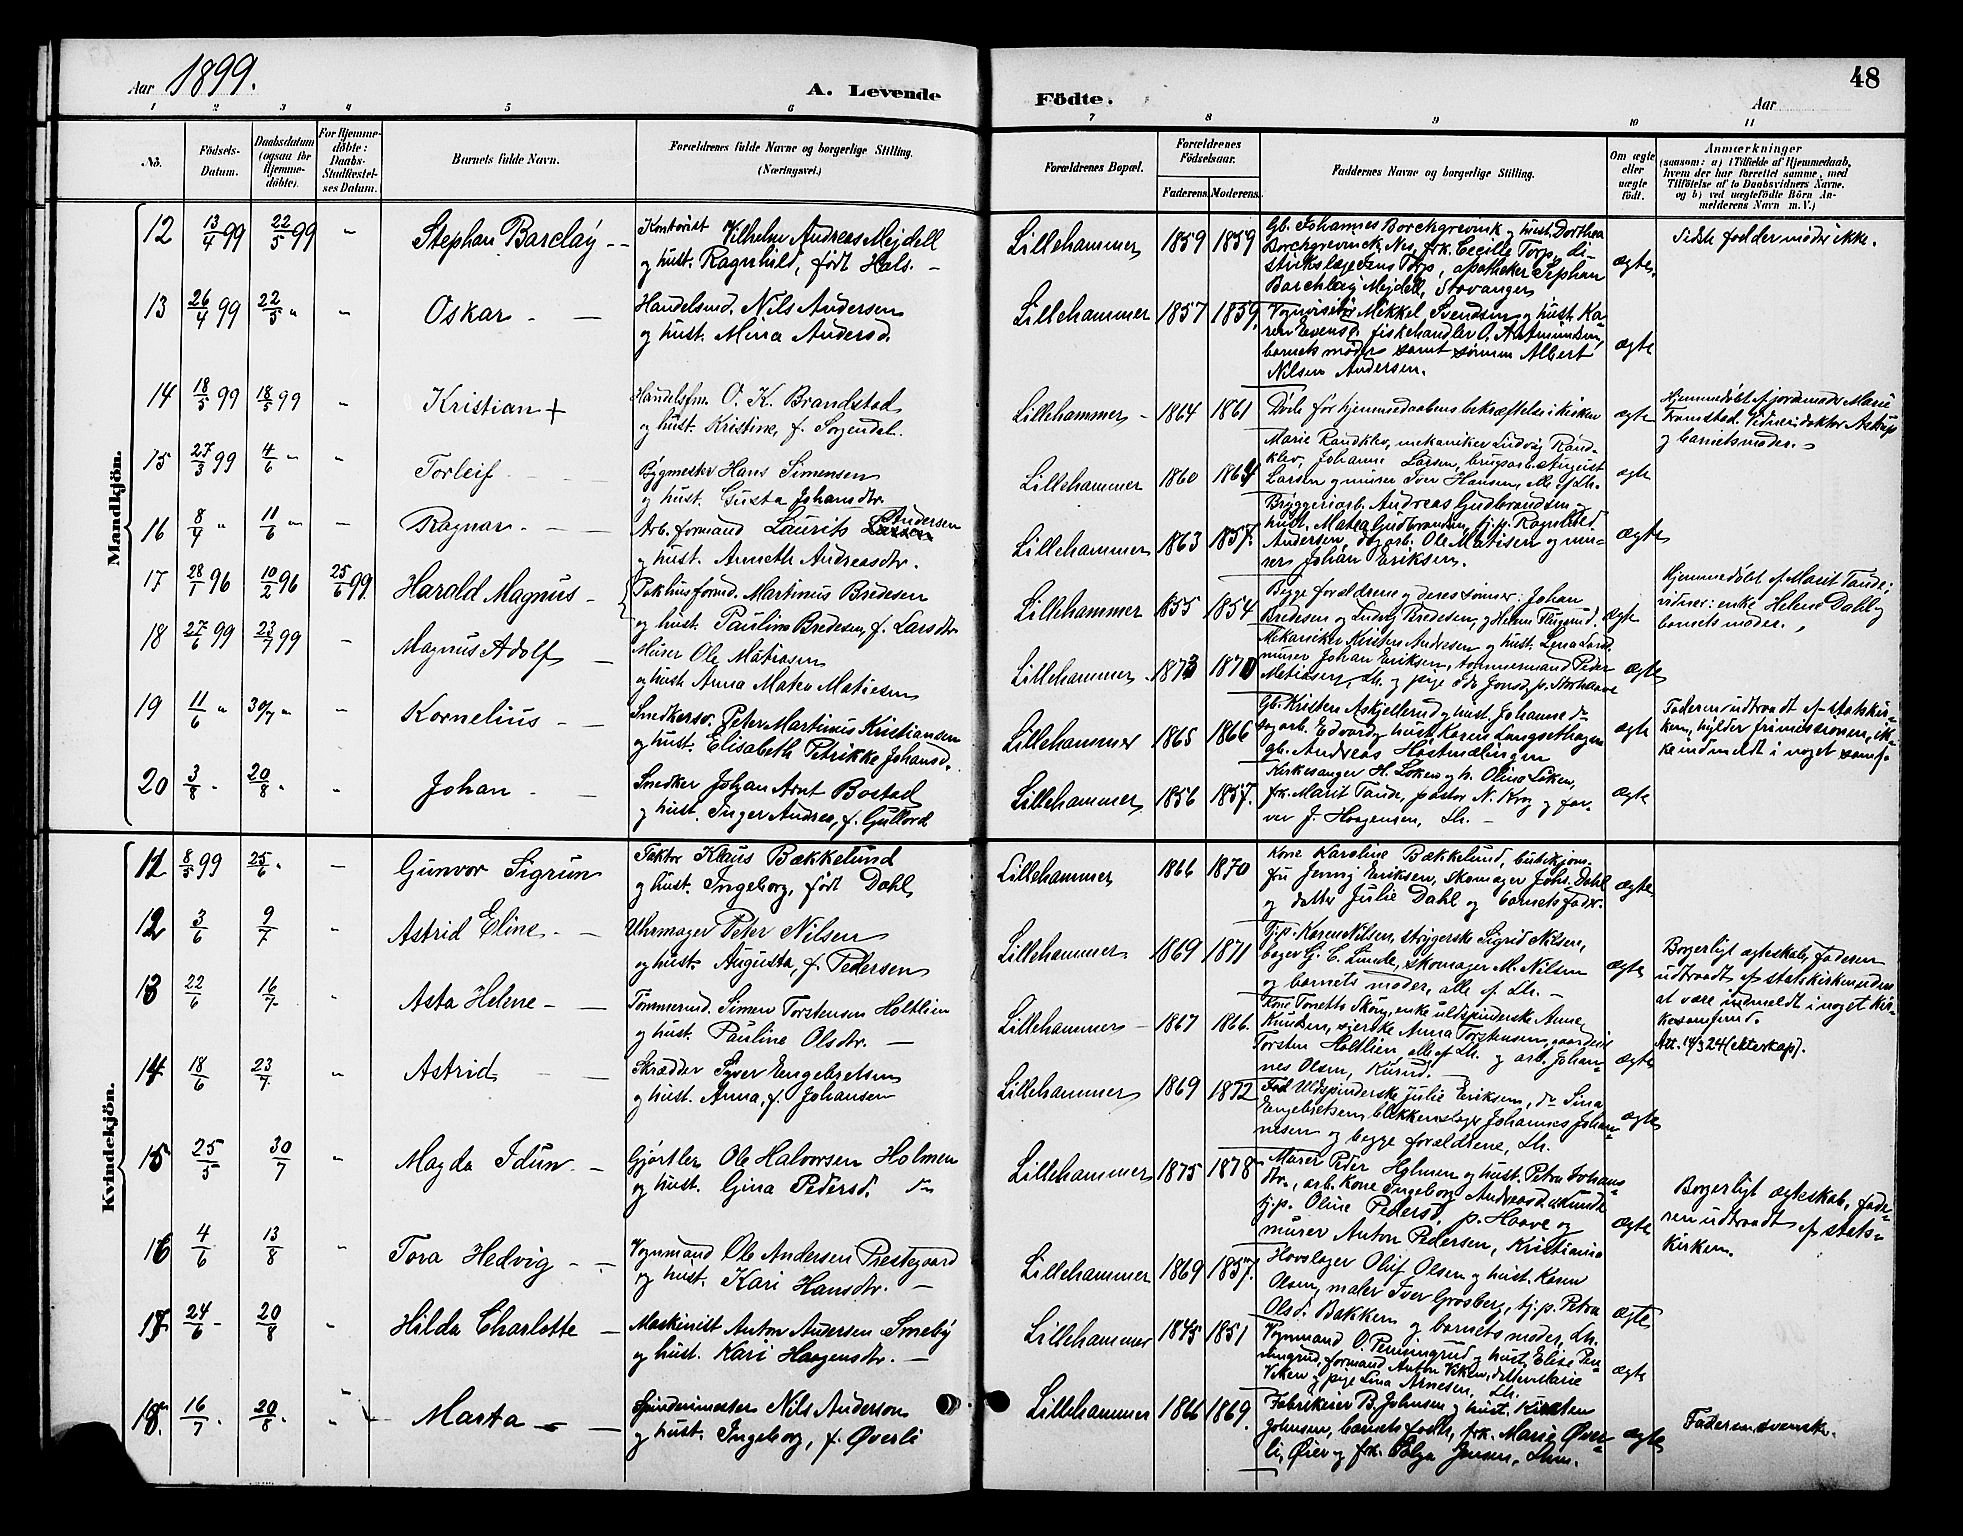 48
Aar 1899. A. Levende Födte. Aar
1 2 3 4 5 6 7 8 9 10 11
No. Födsels-Datum. Daabsdatum (ogsaa for Hjemme-döbte). For Hjemme-döbte: Daabs-Stadfæstel-ses Datum. Barnets fulde Navn. Forældrenes fulde Navne og borgerlige Stilling. (Næringsvei.) Forældrenes Bopæl. Forældrenes Födselsaar. Faderens. Moderens. Faddernes Navne og borgerlige Stilling. Om ægte eller uægte født. Anmærkninger (saasom: a) i Tilfælde af Hjemmedaab, hvem der har forrettet samme, med Tilföielse af to Daabsvidners Navne, og b) ved uægtefödte Börn An-melderens Navn m. V.)
Mandkjön.
12 13/4 99 22/5 99 " Stephan Barclay
Kontorist Vilhelm Andreas Mejdell
og hust. Ragnhild, født Hals.
Lillehammer 1859 1859
Gb. Johannes Borchgrevink og hust. Dorthea
Borchgrevinck, Nes, frk. Cecilie Torp, di-
strikslæge Torp, apotheker Stephan
Barchlay Mejdell, Stavanger
ægte
Sidste fadder møder ikke.
13 26/4 99 22/5 " " Oskar
Handelsmd. Nils Andersen
og hust. Mina Andersd.
Lillehammer 1857 1859.
Mikkel Svendsen og hust. Ka-
ren Evensd, fiskehandler O. A. Amundsen,
barnets moder samt sønnen Albert
Nilsen Andersen.
ægte
14 18/5 99 18/5 99 " Kristian +
Handelsfm. O. K. Brandstad
og hust. Kristine, f. Sorgendal.
Lillehammer 1864 1861
Døde før hjemmedaabens bekræftelse i kirken
ægte
Hjemmedøbt af jordmoder Marie
Tramstad. Vidner: doktor Astrup
og barnets moder.
15 27/3 99 4/6 " " Torleif
Bygmester Hans Simensen
og hust. Gusta Johansdtr.
Lillehammer 1860 1864
Marie Randklev, mekaniker Ludvig Rand-
klev, Johanne Larsen, brugsarb. August
Larsen og murer Iver Hansen, alle af Lh.
ægte
16 8/4 " 11/6 " " Ragnar
Arb. formand Laurits Andersen
og hust. Anneth Andreasdtr.
Lillehammer 1863 1857.
Bryggeriarb. Andreas Gudbrandsen,
hust. Matea Gudbrandsen, tj.p. Ragnhild
Andersen, dagarb. Ole Matisen og mu-
rer Johan Eriksen.
ægte
17 28/1 96 10/2 96 25/6 99 Harald Magnus
Pakhusformd. Martinus Bredesen
og hust. Pauline Bredesen, f. Larsdtr
Lillehammer 1855 1854
Begge forældrene og deres sønner: Johan
Bredesen og Ludvig Bredesen, og Helene
ægte
Hjemmedøbt af Marit Tande;
vidner: enke Helene Dahl og
barnets moder.
18 27/6 99 23/7 99 " Magnus Adolf
Murer Ole Matiasen
og hust. Anna Matea Matiesen
Lillehammer 1873 1870
Mekaniker Kristen Andersen og hust. Lena
murer Johan Eriksen, tømmermand Peder
Matiasen, Lh. og pige
ægte
19 11/6 " 30/7 " " Kornelius
Snedkersv. Peter Martinus Kristiansen
og hust. Elisabeth Petrikke Johansd.
Lillehammer 1865 1866
Gb. Kristen Askjellerud og hust. Johanne do
Edvard og hust. Karen Langsethagen
gb. Andreas Høstmælingen
ægte
Faderen udtraadt af statskir-
ken, hylder frimissionen, ik-
ke indmeldt i noget samf.
20 3/8 " 20/8 " " Johan
Snedker Johan Arnt Bostad
og hust. Inger Andrea, f. Gullord
Lillehammer 1856 1857.
Kirkesanger H. Løken og h. Oline Løken,
frk. Marit Tande, pastor N. Krog og far-
ver J. Haagensen, Lh.
ægte
Kvindekjön.
11 8/5 99 25/6 " " Gunvor Sigrun
Faktor Klaus Bækkelund
og hust. Ingeborg, født Dahl
Lillehammer 1866 1870
Kone Karoline Bækkelund, butikjom-
fru Jenny Eriksen, Skomager Johs. Dahl
og datter Julie Dahl og barnets fader.
ægte
12 3/6 9/7 " Astrid Eline
Uhrmager Peter Nilsen
og hust. Augusta, f. Pedersen
Lillehammer 1869 1871
Tj.p. Karen Nilsen, strygerske Sigrid Nilsen,
bager G. E. Lunde, skomager M. Nilsen
og barnets moder, alle af Lh.
ægte
Borgerligt ægteskab, faderen
udtraadt af statskirken uden
at være indmeldt i noget kir-
kesamfund.
Att. 14/3 24 (ekteskap).
13 22/6 16/7 " Asta Helene
Tømmermd. Simen Torstensen Holtlien
og hust. Pauline Olsdtr.
Lillehammer 1867 1866.
Kone Tonette Skog, enke uldspinderske Anne
Knudsen, sjerske Anna Torstensen,
Torsten Holtlien alle af Lh. og arb. Johan-
nes Olsen,
ægte
14 18/6 23/7 " Astrid
Skrædder Syver Engebretsen
og hust. Anna, f. Johansen
Lillehammer 1869 1872
Uldspinderske Julie Eriksen, do Sina
Engebretsen, blikkenslager Johannes Johan-
nesen og begge forældrene, Lh.
ægte
15 25/5 30/7 " Magda Idun
Gjørtler Ole Halvorsen Holmen
og hust. Gina Pedersd. do
Lillehammer 1875 1878
Murer Peder Holmen og hust. Petra Johans-
dtr., arb. kone Ingeborg Andreasd
tj.p. Oline Pedersd. p. Haave og
murer Anton Pedersen, Kristiania
ægte
Borgerligt ægteskab, fade-
ren udtraadt af stats-
kirken.
16 4/6 13/8 " Tora Hedvig
Vognmand Ole Andersen Prestegaard
og hust. Kari Hansdtr.
Lillehammer 1869 1857.
Hovslager Oluf Olsen og hust. Karen
Olsen, maler Iver Grosberg, tj.p. Petra
Olsd. Bakken og barnets moder, Lh.
ægte
17 24/6 20/8 " Hilda Charlotte
Maskinist Anton Andersen Smeby
og hust. Kari Haagensdtr.
Lillehammer 1845 1851
Vognmand O. Penningrud og hust. Elise Pen-
ningrud, formand Anton Viken, datter Marie
Viken og pige Lina Arnesen, Lh.
ægte
18. 16/7 20/8 " Marta
Spinderimester Nils Anderson
og hust. Ingeborg, f. Øverli
Lillehammer 1866 1869.
Fabrikeier B. Johnsen og hust. Kirsten
Johnsen, barnets fader, frk. Marie Øver-
li, Øier og frk. Helga Jensen, Lhm.
ægte
Faderen svensk.